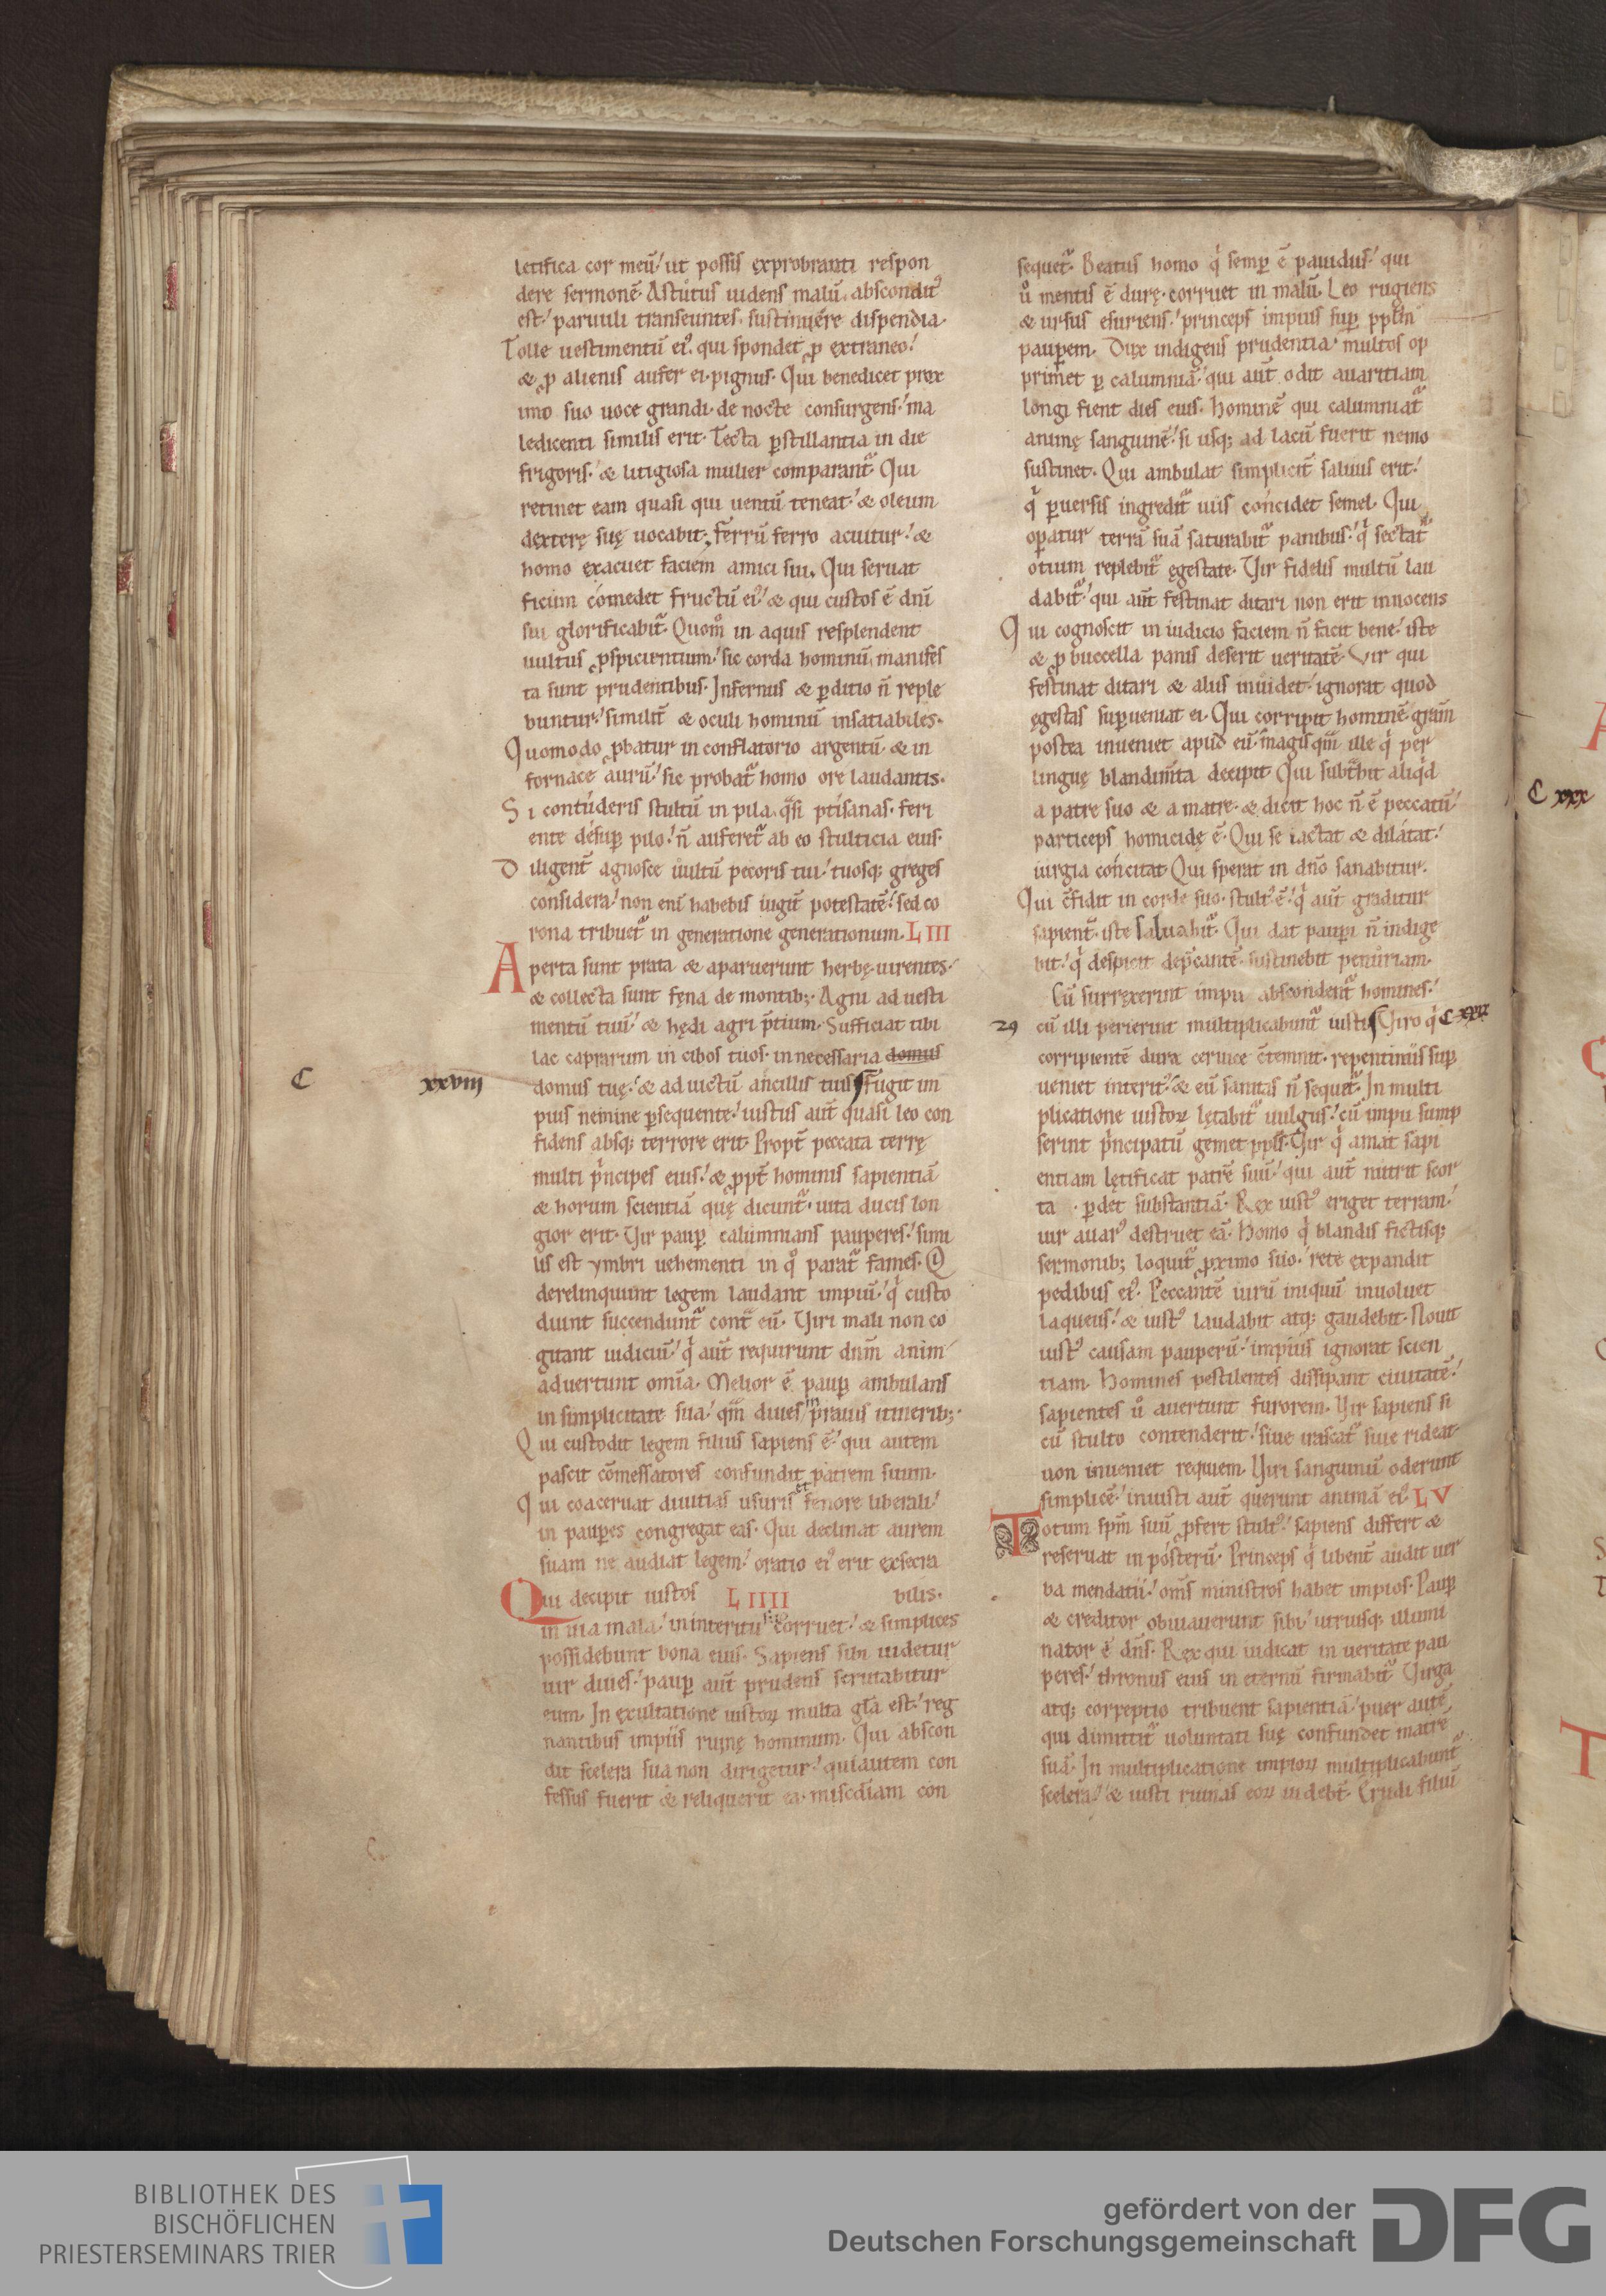 letifica cor meū ut possis exprobranti respon
dere sermonē. Astutus uidens malū. absconditꝰ
est. paruuli transeuntes. sustinuere dispendia.
Tolle uestimentū eiꝰ. qui spondet ꝓ extraneo.
& ꝓ alienis aufer ei pignus. Qui benedicet prox
imo suo uoce grandi. de nocte consurgens. ma
ledicenti similis erit. Tecta ꝑstillantia in die
frigoris. & litigiosa mulier comparant᷑. Qui
retinet eam quasi qui uentū teneat. & oleum
dexterę suę uocabit. Ferrū ferro acuitur. &
homo exacuet faciem amici sui. Qui seruat
ficum comedet fructū eiꝰ. & qui custos ē dn̄i
sui glorificabit᷑. Quom̊ in aquis resplendent
uultus ꝓspicientium. sic corda hominū manifes
ta sunt prudentibus. Infernus & ꝑditio n̄ reple
buntur. similit̄ & oculi hominū insatiabiles.
Quomodo ꝓbatur in conflatorio argentū & in
fornace aurū. sic probat᷑ homo ore laudantis.
Si contuderis stultū in pila. q̄si ptisanas. feri
ente desuꝑ pilo. n̄ auferet᷑ ab eo stulticia eius.
Diligent̄ agnosce uultū pecoris tui. tuosq; greges
considera. non eni habebis iugit̄ potestatē. sed co
rona tribuet᷑ in generatione generationum. LIII
Aperta sunt prata & aparuerunt herbę uirentes.
& collecta sunt fęna de montib;. Agni ad uesti
mentū tuū. & hędi agri p̄tium. Sufficiat tibi
lac caprarum in cibos tuos. in necessaria domus
C xxviii domus tuę. & ad uictū ancillis tuis. Fugit im
pius nemine ꝑsequente. iustus aut̄ quasi leo con
fidens absq; terrore erit. Propt̄ peccata terrę
multi p̄ncipes eius. & ꝓpt̄ hominis sapientiā
& horum scientiā quę dicunt᷑. uita ducis lon
gior erit. Vir pauꝑ calumnians pauperes. simi
lis est ymbri uehementi in q̊ parat᷑ fames. Q
derelinquunt legem laudant impiū. q̇ custo
diunt succendunt᷑ cont̄ eū. Viri mali non co
gitant iudiciū. q̇ aut̄ requirunt dn̄m anim
aduertunt omīa. Melior ē pauꝑ ambulans
in simplicitate sua. qm̄ diues in prauis itinerib;.
Qui custodit legem filius sapiens ē. qui autem
pascit cōmessatores confundit patrem suum.
Qui coaceruat diuitias usuris et fenore liberali.
in pauꝑes congregat eas. Qui declinat aurem
suam ne audiat legem. oratio eiꝰ erit exsecra
Qui decipit iustos LIIII bilis.
in uia mala. in interitu suo corruet. & simplices
possidebunt bona eius. Sapiens sibi uidetur
uir diues. pauꝑ aut̄ prudens scrutabitur
eum. In exultatione iustoꝝ multa gla est. reg
nantibus impiis ruinę hominum. Qui abscon
dit scelera sua non dirigetur. qui autem con
fessus fuerit & reliquerit ea. misc̄diam con
sequet᷑. Beatus homo q̇ semꝑ ē pauidus. qui
ů mentis ē durę. corruet in malū. Leo rugiens
& ursus esuriens. princeps impius suꝑ pplm̄
pauꝑem. Dux indigens prudentia. multos op
primet ꝑ calumniā. qui aut̄ odit auaritiam
longi fient dies eius. Hominē qui calumniat᷑
animę sanguinē. si usq; ad lacū fuerit nemo
sustinet. Qui ambulat simplicit̄ saluus erit.
q̇ ꝑuersis ingredit᷑ uiis concidet semel. Qui
oꝑatur terrā suā saturabit᷑ panibus. q̇ sectat᷑
otium replebit᷑ egestate. Vir fidelis multū lau
dabit᷑. qui aut̄ festinat ditari non erit innocens
Qui cognoscit in iudicio faciem n̄ facit bene. iste
& ꝓ buccella panis deserit ueritatē. Vir qui
festinat ditari & aliis inuidet. ignorat quod
egestas suꝑueniat ei. Qui corripit hominē. gram̄
postea inueniet apud eū magis qm̄ ille q̇ per
linguę blandim̄ta decipit. Qui subt̄hit aliq̇d
a patre suo & a matre. & dicit hoc n̄ ē peccatū.
particeps homicidę ē. Qui se iactat & dilatat.
iurgia concitat. Qui sperat in dn̄o sanabitur.
Qui c̄fidit in corde suo. stultꝰ ē. q̇ aut̄ graditur
sapient̄. iste saluabit᷑. Qui dat pauꝑi n̄ indige
bit. q̇ despicit dep̄cantē. sustinebit penuriam.
Cū surrexerint impii abscondent᷑ homines.
29 cū illi perierint multiplicabunt᷑ iusti. Viro q̇ C xxix
corripientē dura ceruice c̄temnit. repentinus suꝑ
ueniet interitꝰ. & eū sanitas n̄ sequet᷑. In multi
plicatione iustoꝝ lętabit᷑ uulgus. cū impii sump
serint p̄ncipatū gemet ppls̄. Vir q̇ amat sapi
entiam lętificat patrē suū. qui aut̄ nutrit scor
ta ꝑdet substantiā. Rex iustꝰ eriget terram.
uir auarꝰ destruet eā. Homo q̇ blandis fictisq;
sermonib; loquit᷑ ꝓximo suo. rete expandit
pedibus eiꝰ. Peccantē uirū iniquū inuoluet
laqueus. & iustꝰ laudabit atq; gaudebit. Nouit
iustꝰ causam pauperū. impius ignorat scien
tiam. Homines pestilentes dissipant ciuitatē.
sapientes ů auertunt furorem. Vir sapiens si
cū stulto contenderit. siue irascat᷑ siue rideat
non inueniet requiem. Viri sanguinū oderunt
simplicē. iniusti aut̄ querunt animā eiꝰ. LV
Totum spm̄ suū ꝓfert stultꝰ. sapiens differt &
reseruat in posterū. Princeps q̇ libent̄ audit uer
ba mendatii. om̄s ministros habet impios. Pauꝑ
& creditor obuiauerunt sibi. utriusq; illumi
nator ē dn̄s. Rex qui iudicat in ueritate pau
peres. thronus eius in eternū firmabit᷑. Virga
atq; correptio tribuent sapientiā. puer autē
qui dimittit᷑ uoluntati suę confundet matrē
suā. In multiplicatione impioꝝ multiplicabunt᷑
scelera. & iusti ruinas eoꝝ uidebt̄. Erudi filiū
A
C xxx
C
T
BIBLIOTHEK DES
BISCHÖFLICHEN
PRIESTERSEMINARS TRIER
gefördert von der
Deutschen Forschungsgemeinschaft
DFG